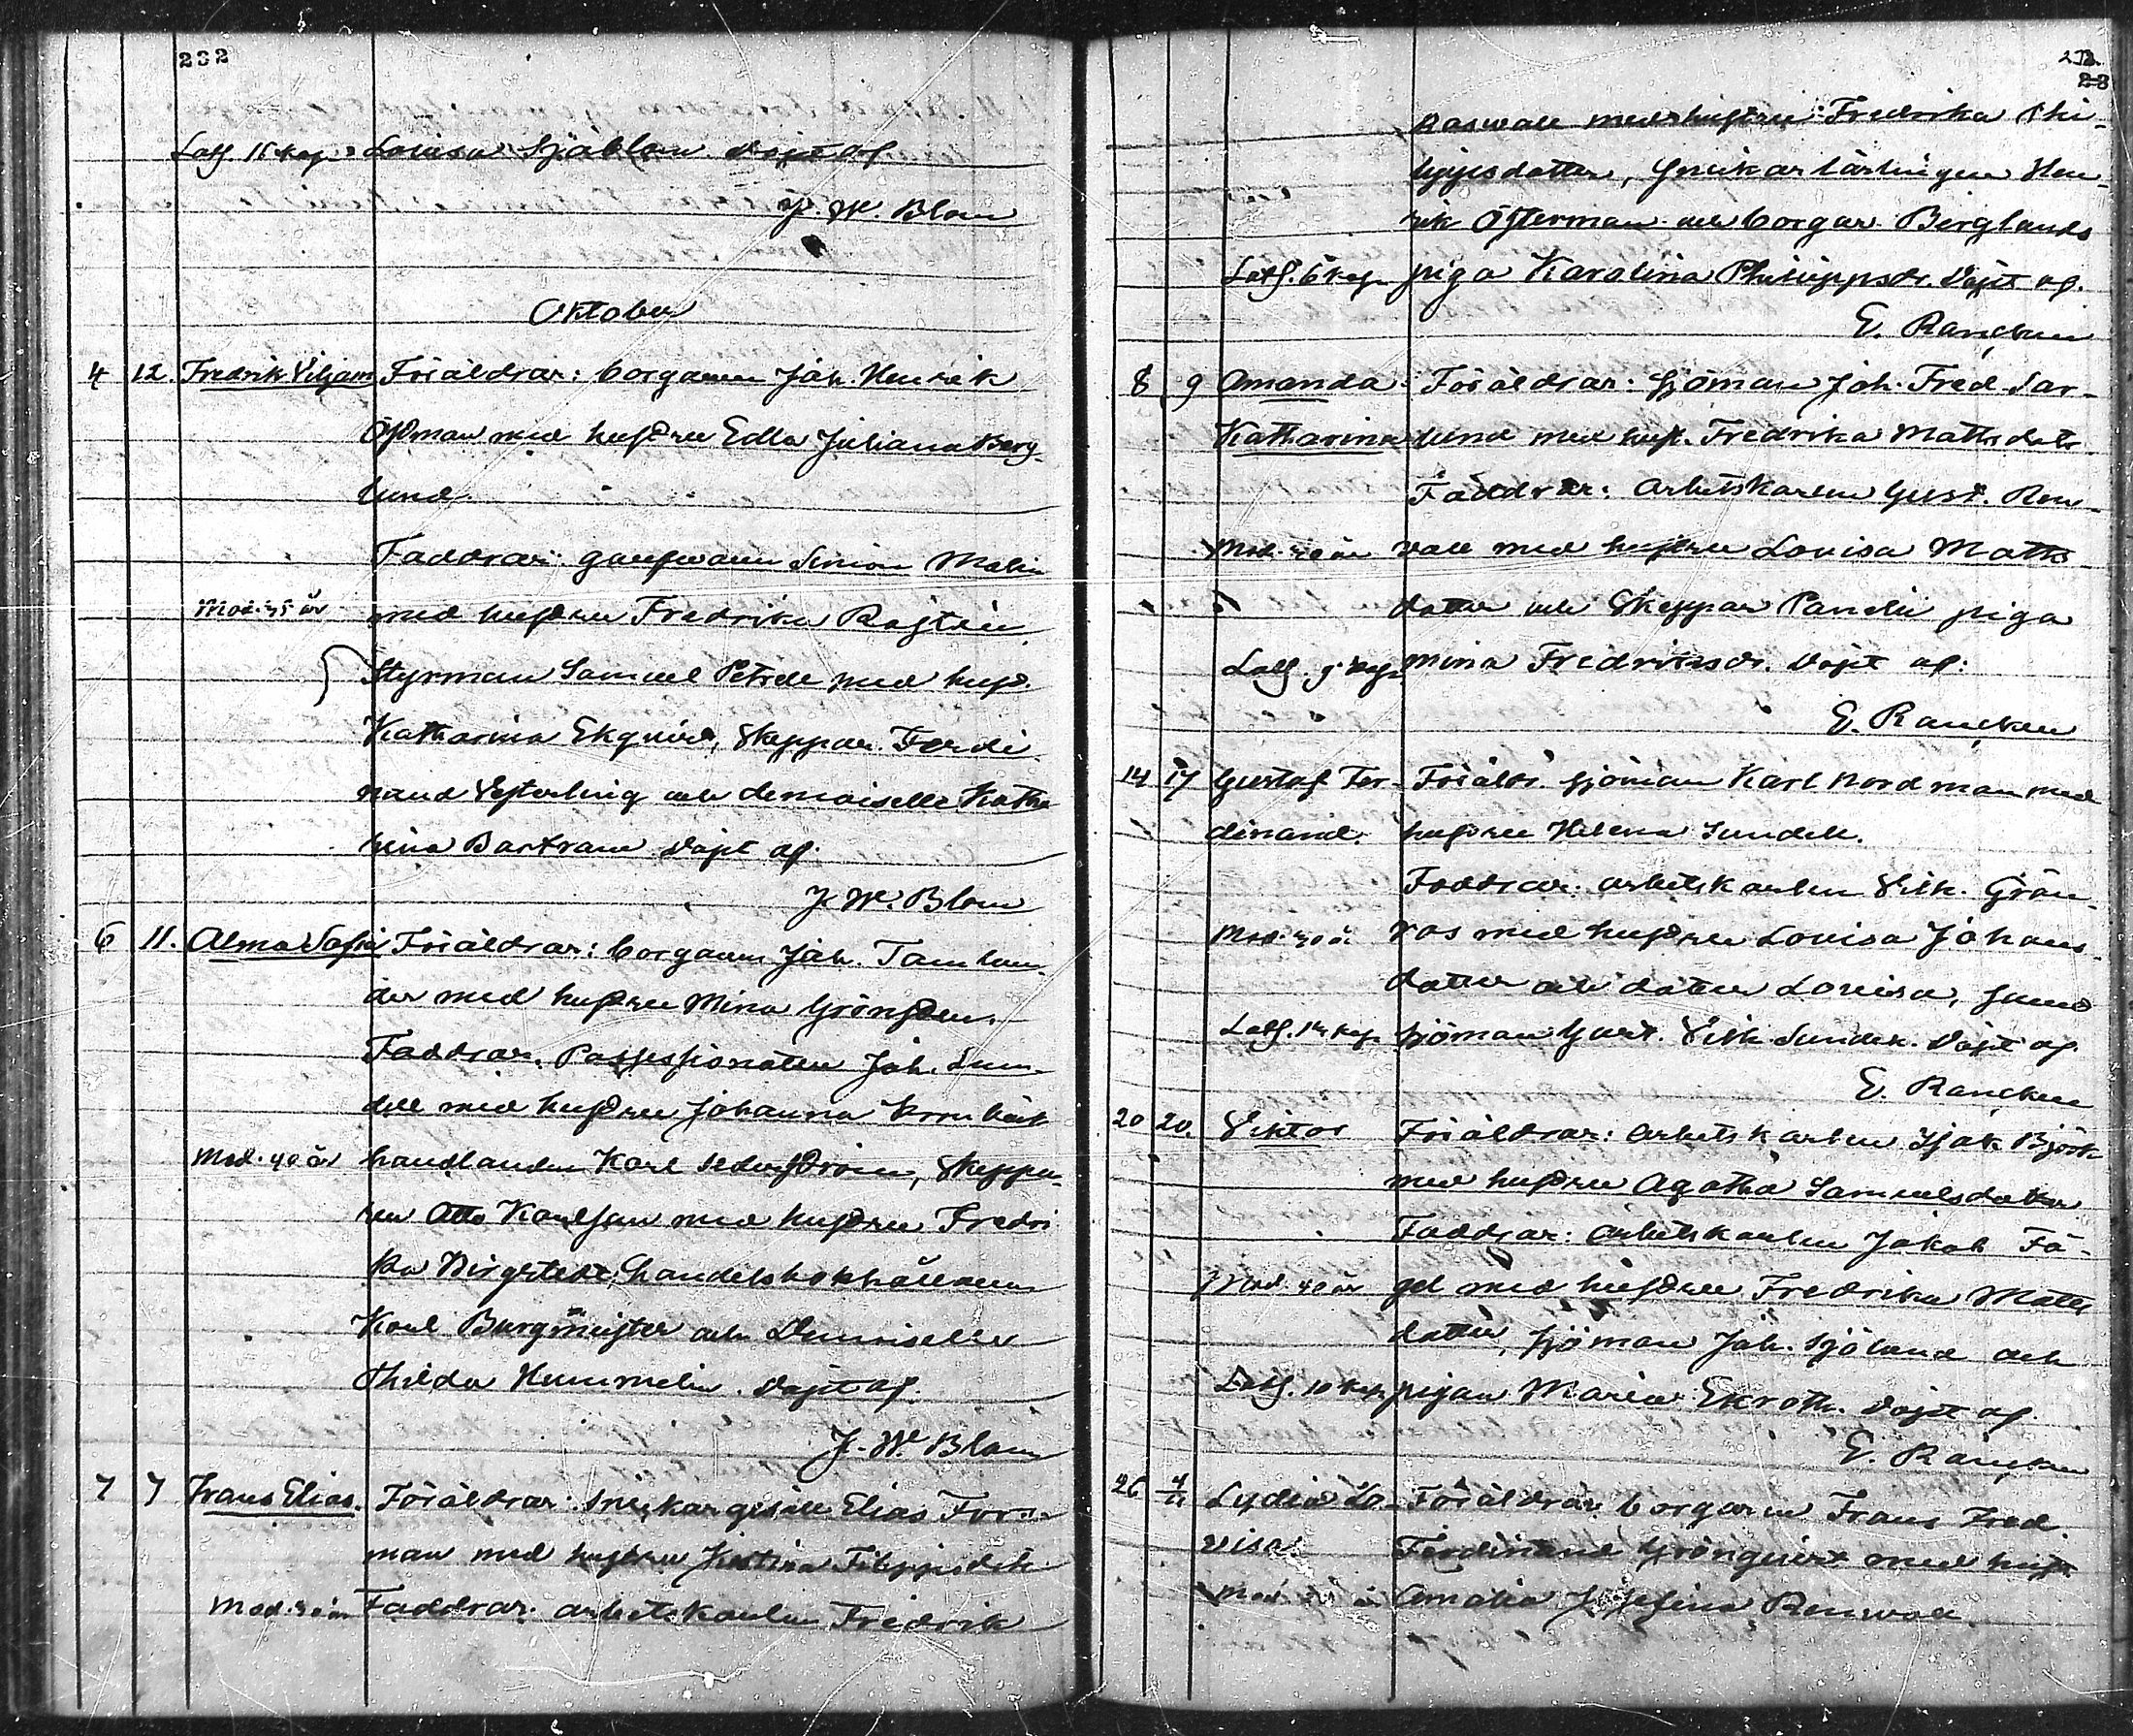 232
Louisa Sjöblom. Döpt af
J. W. Blom
Oktober
4 12. Fredrik Viljam Föräldrar: borgaren Joh. Henrik
Östman med hustru Edla Juliana Berg-
lund.
Faddrar: Simon Malin
Mod. 35 år med hustru Fredrika
Styrman Samuel Petrell med hust.
Katharina Ekqvist, Skeppar Ferdi-
nand Vesterling och demoiselle Katha-
rina Bartram. Döpt af
J. W. Blom
6 11. Alma Sofia Föräldrar: borgaren Joh. Tamlan-
der med hustru Mina Grönstren.
Faddrar: Possessionaten Joh. Sun-
dell med hustru Johanna
Mod. 40 år handlanden Karl Sederström, Skeppa-
ren Otto Karlsson med hustru Fredri-
ka Birgstedt, handelsbokhållaren
Karl Burgmeister och Demoiselle
Thilda Hummelin. Döpt af.
J. W. Blom
7 7 Frans Elias. Föräldrar: Snickargesäll Elias For-
man med hustru Kristina
Mod. Faddrar: arbetskarlen Fredrik
23
med hustru Fredrika Phi-
lippsdotter, Snickarlärlingen Hen-
rik Österman och borgar Berglunds
Lösf. 6 kop. piga Karolina Philippsdr. Döpt af.
E. Rancken
8 9 Amanda Föräldrar: Sjöman Joh. Fred.
Katharina lund med hust. Fredrika Mattsdotr
Faddrar: Arbetskarlen Gust. Ren-
vall med hustru Louisa Matts-
dotter och Skeppar piga
Mina Fredriksdr. Döpt af:
E. Rancken
14 17 Gustaf Fer- Föräldr. Sjöman Karl Nordman med
dinand. hustru Helena Sundell.
Faddrar: arbetskarlen Vilh. Grön-
Mod. 30 å. roos med hustru Louisa Johans-
dotter och dotter Louisa, samt
sjöman Gust. Vilh. Sundell. Döpt af.
E. Rancken
20 20. Viktor Föräldrar: Arbetskarlen Isak Björk
med hustru Agatha Samuelsdotter
Faddrar: Arbetskarlen Jakob Få-
Mod. 40 år gel med hustru Fredrika Matts-
dotter, sjöman Joh. Sjölund och
10 kop. pigan Maria Ekroth. Döpt af.
E. Rancken
26 4/11 Lydia Lo- Föräldrar: borgaren Frans Fred.
visa Ferdinand Grönqvist med hust.
Amalia Josefina Renwall